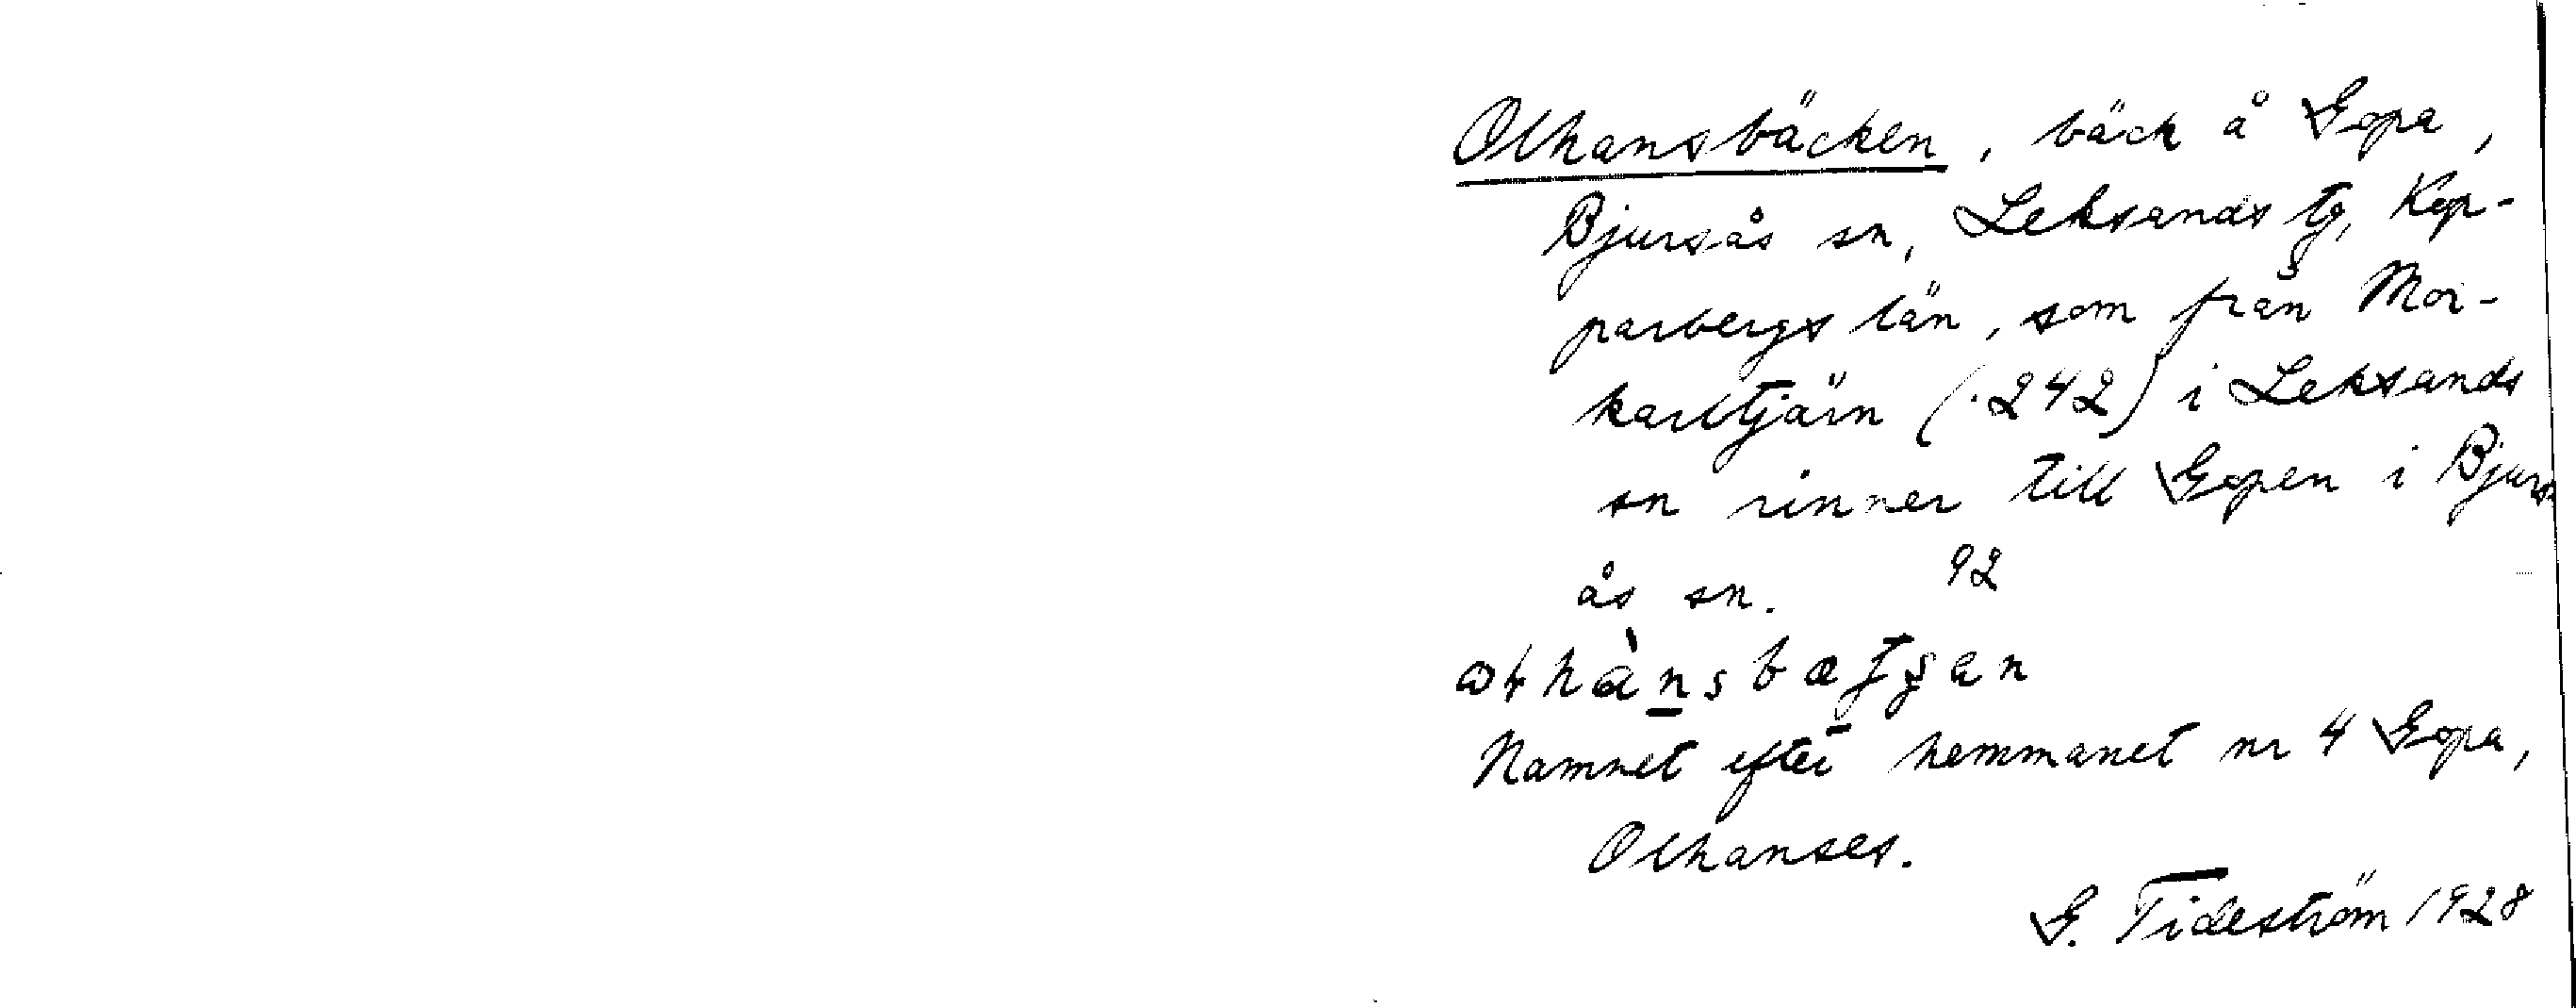 Olhansbäcken, bäck å Gopa,
Bjursås sn, Leksands tg, Kop-
parbergs län, som från Mor-
karltjärn (.242) i Leksands
sn rinner till Gopen i Bjurs-
ås sn. 92
Namnet efter hemmanet nr 4 Gopa,
Olhanses.
G. Tideström 1928